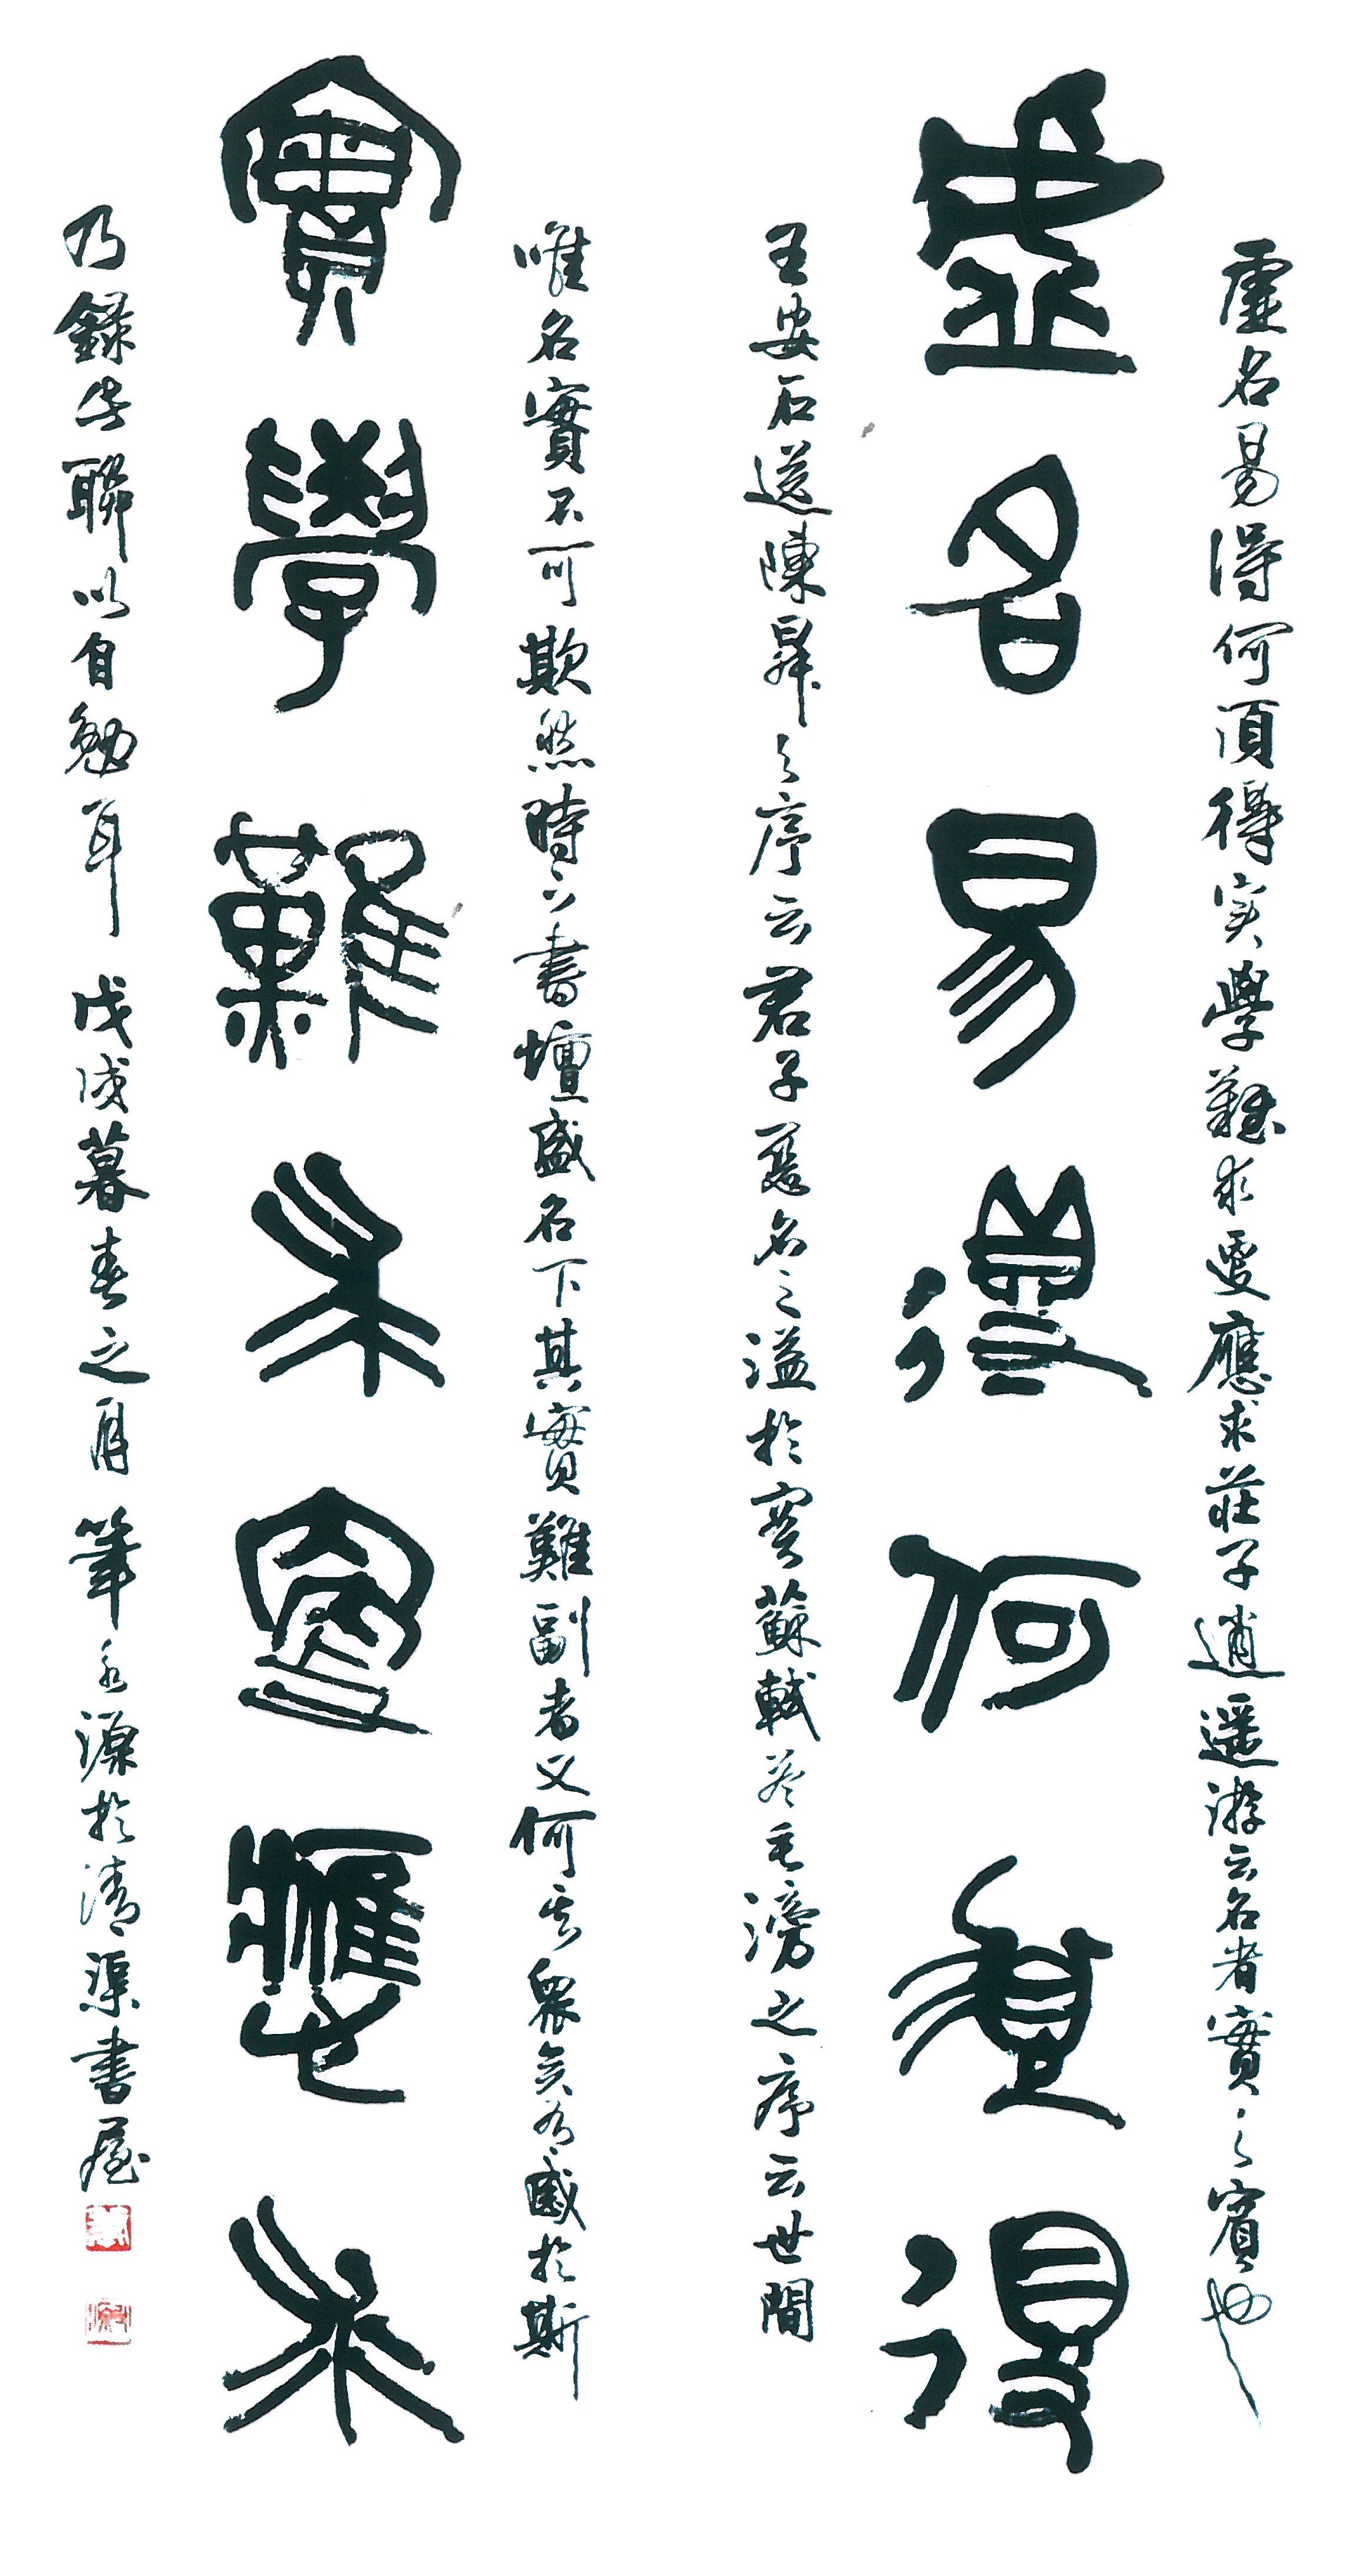 虛名易得何須得实學難求更應求莊子逍遥游云名者實之賓也
虛名易得何須得
王安石送陳昇之序云君子惡名之溢於實蘇軾答毛滂之序云世間
唯名實不可欺然時下書壇盛名下其實難副者又何其衆矣有感於斯
實學難求更應求
乃録此聯以自勉耳 戊戌暮春之月 永源於清渠書屋